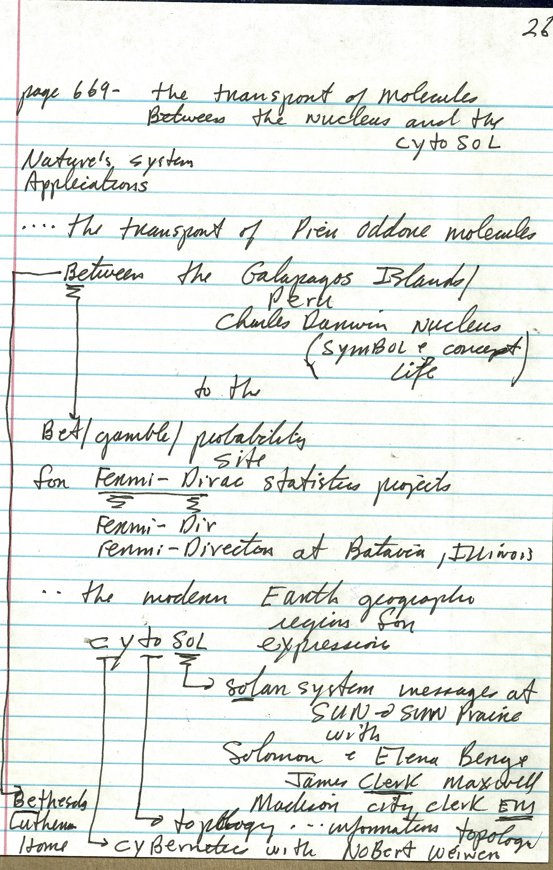 28
page 669- the transport of molecules
Between the nucleus and the
cytoSOL
Nature's system
Applications
.... the transport of Pier Oddone molecules
Between the Galapagos Islands/
Peru
Charles Darwin Nucleus
(SymBOL & concept)
Life
to the
Bet/gamble/probability
site
for Fermi-Dirac statistics projects
Fermi-Dir
Fermi-Director at Batavia, Illinois
.. the modern Earth geographo
regions for
cytoSOL expression
solar system messages at
SUN → SUN Prairie
with
Solomon & Elena Benge
James Clerk Maxwell
Bethesda Madison city clerk EM
Lutheran topology ... information topology
Home cyBernetics with NoBert Weiner